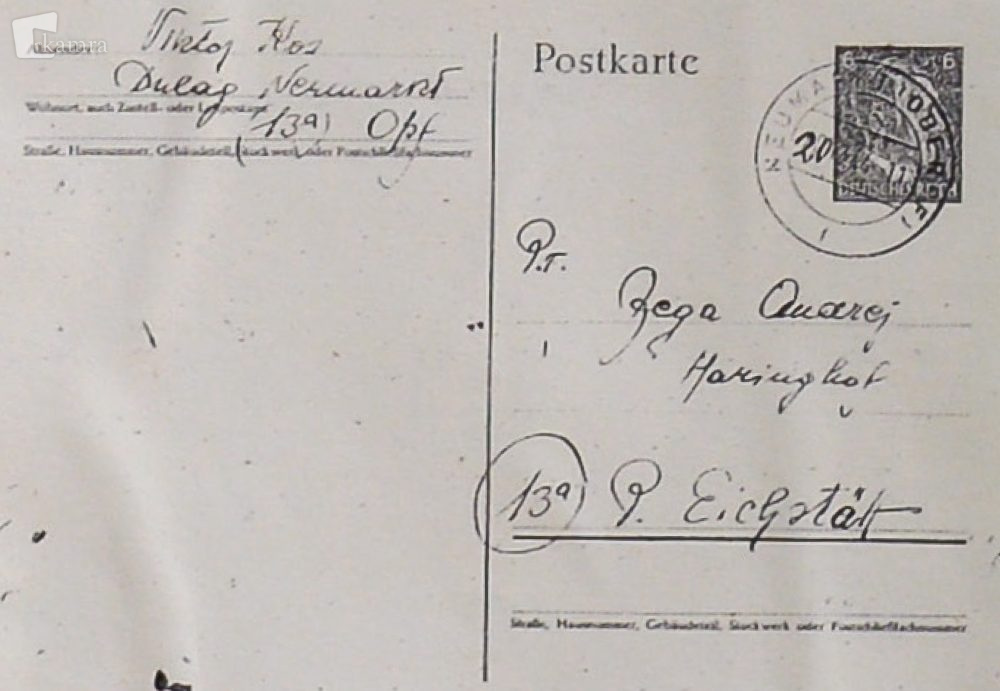 kamra
Absender:
Viktor Kos
Dulag Neumarkt
Wohnort, auch Zustell- oder Leitpostamt
13a) Opf
Straße, Hausnummer, Gebäudeteil, Stockwerk oder Postschließfachnummer
Postkarte
6 6
NEUMA (OBERPF)
20
DEUTSCHES REICH
P.T.
Zega Andrej
Haringhof
13a) P. Eichstätt
Straße, Hausnummer, Gebäudeteil, Stockwerk oder Postschließfachnummer